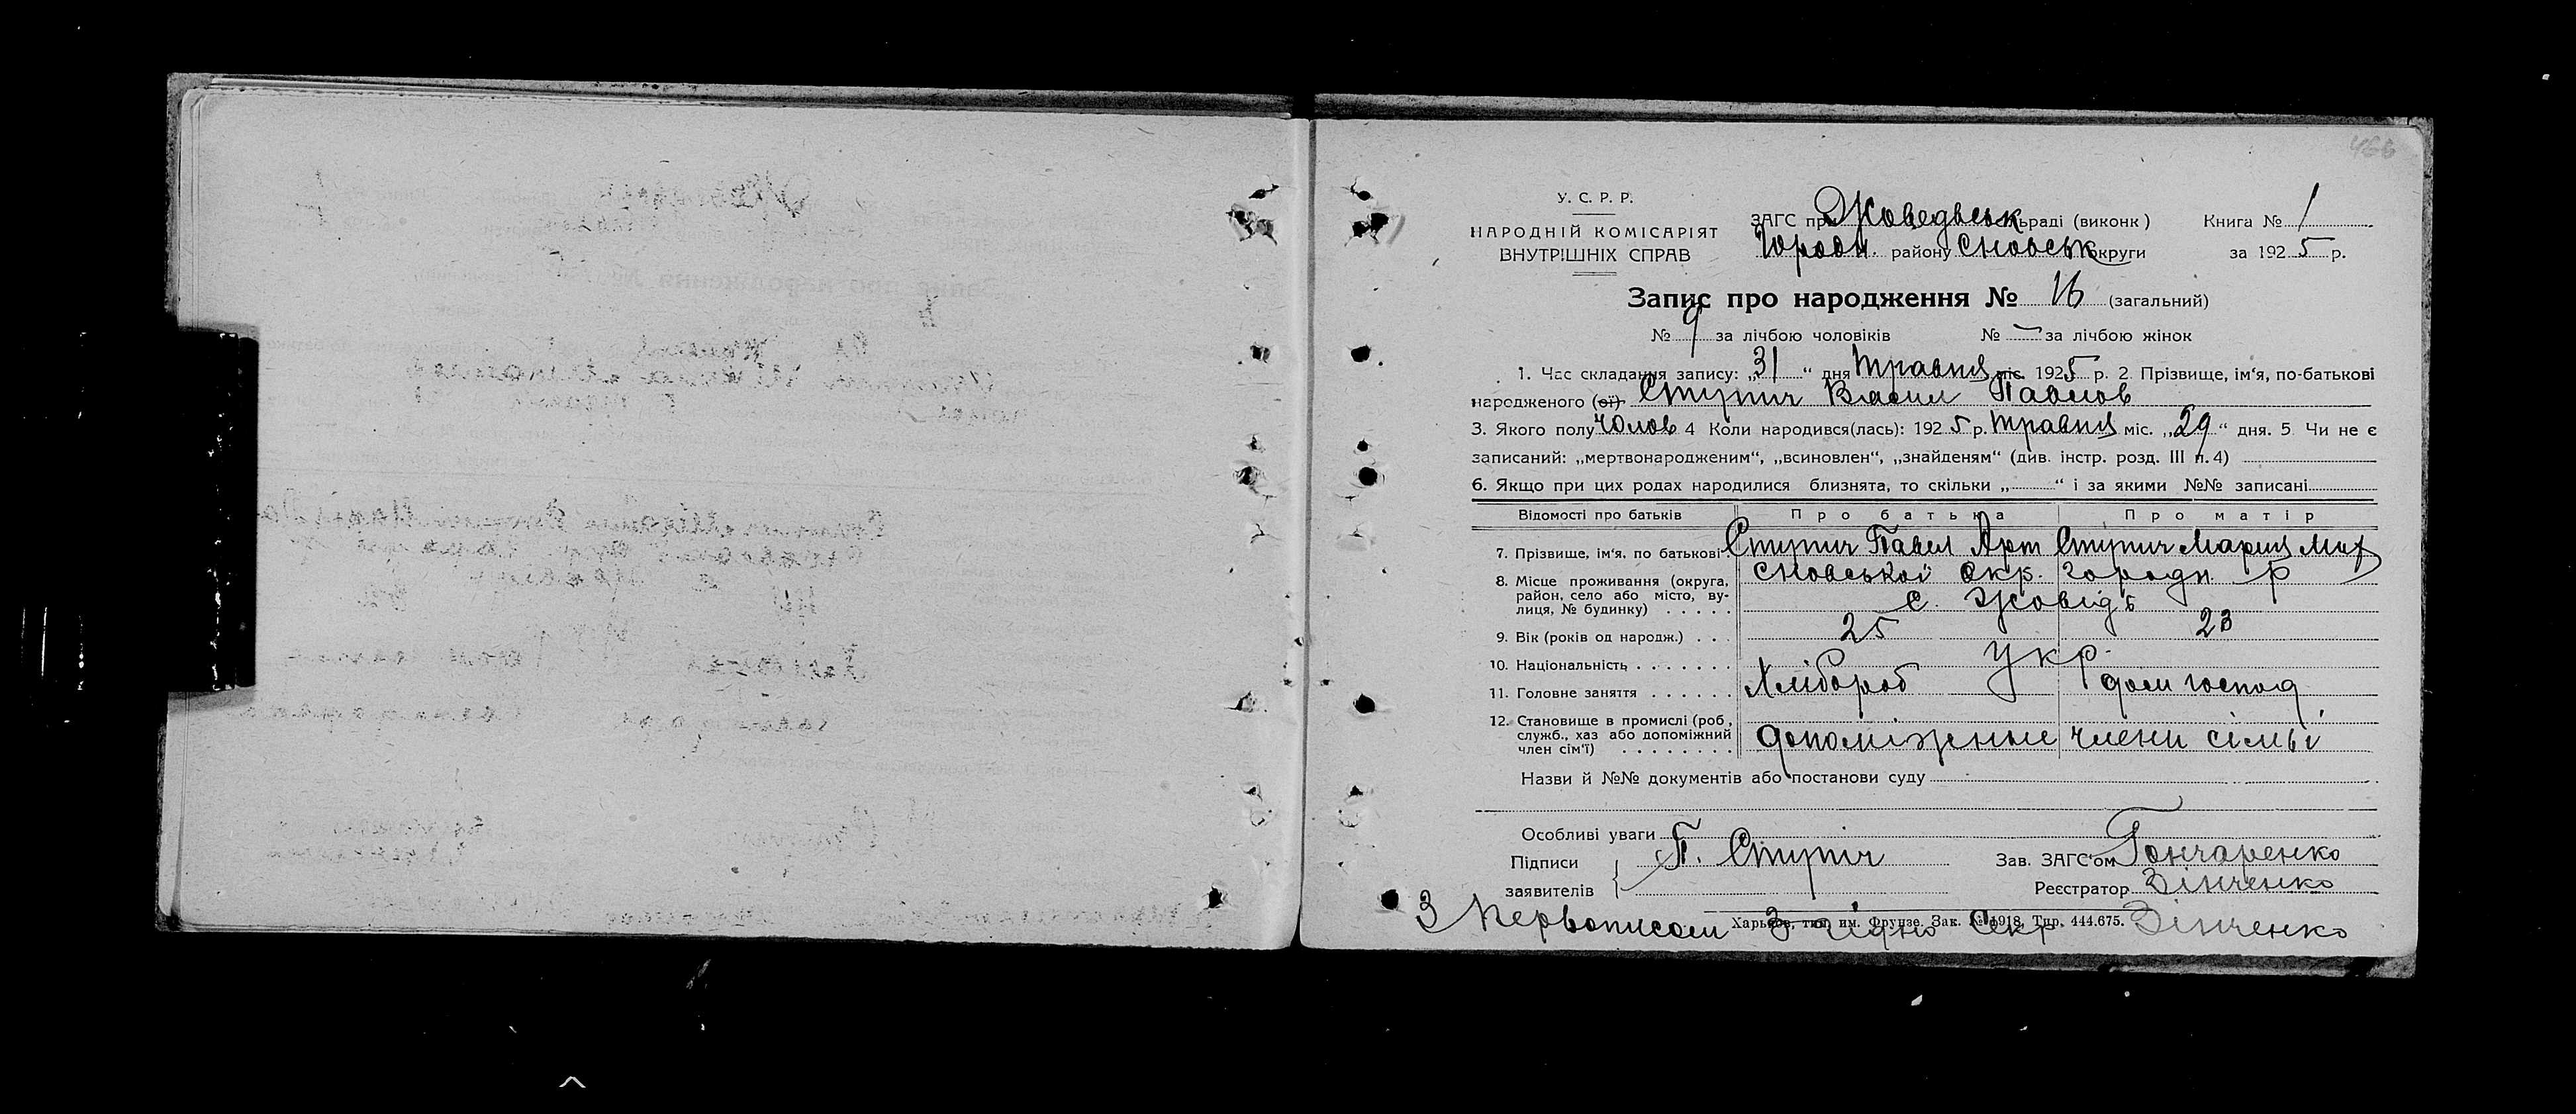 466
У. С. Р. Р.
НАРОДНІЙ КОМІСАРІЯТ
ВНУТРІШНІХ СПРАВ
ЗАГС при Жоведьськ раді (виконк) Книга № 1
Городн. району Сновськ округи за 1925 р.
Запис про народження № 16 (загальний)
№ 9 за лічбою чоловіків № — за лічбою жінок
1. Час складання запису: „31“ дня Травня міс. 1925 р. 2. Прізвище, ім'я, по-батькові
народженого (ої) Ступич Васил Павлов
3. Якого полу чолов 4 Коли народився(лась): 1925 р. Травня міс. „29“ дня. 5. Чи не є
записаний: „мертвонародженим“, „всиновлен“, „знайденям“ (див. інстр. розд. III п. 4)
6. Якщо при цих родах народилися близнята, то скільки „ “ і за якими №№ записані
Відомості про батьків Про батька Про матір
7. Прізвище, ім'я, по батькові Ступич Павел Арт Ступич Мария Мих
8. Місце проживання (округа, район, село або місто, вулиця, № будинку) Сновської окр. Городн. р
с. Жовідь
9. Вік (років од народж.) 25 23
10. Національність Укр.
11. Головне заняття Хлібороб дом господ
12. Становище в промислі (роб, служб., хаз або допоміжний член сім'ї) допоміжные члени сімьі
Назви й №№ документів або постанови суду
Особливі уваги
Підписи заявителів П. Ступич Зав. ЗАГС'ом Гончаренко
Реєстратор Зінченко
Харьков, тип. им. Фрунзе. Зак. № 1918, Тир. 444.675.
З Первописом згідно Секр Зінченко